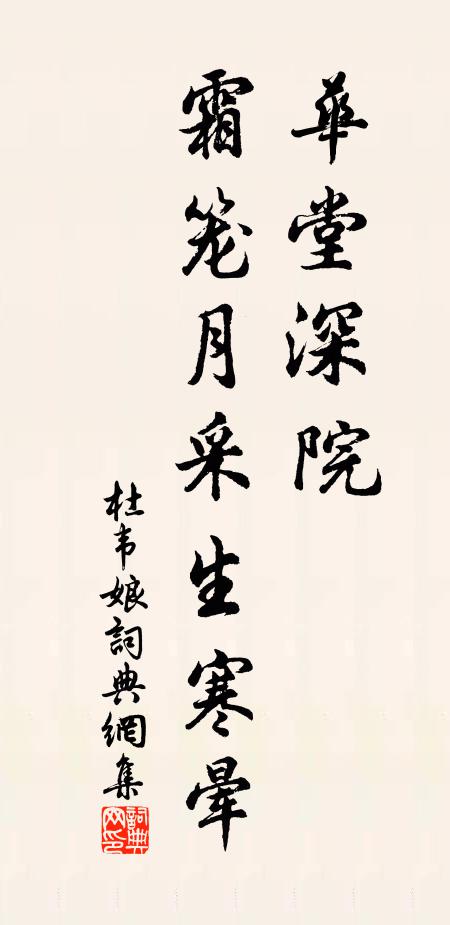 華堂深院
霜笼月采生寒暈
杜韦娘詞典網集
詞典网印